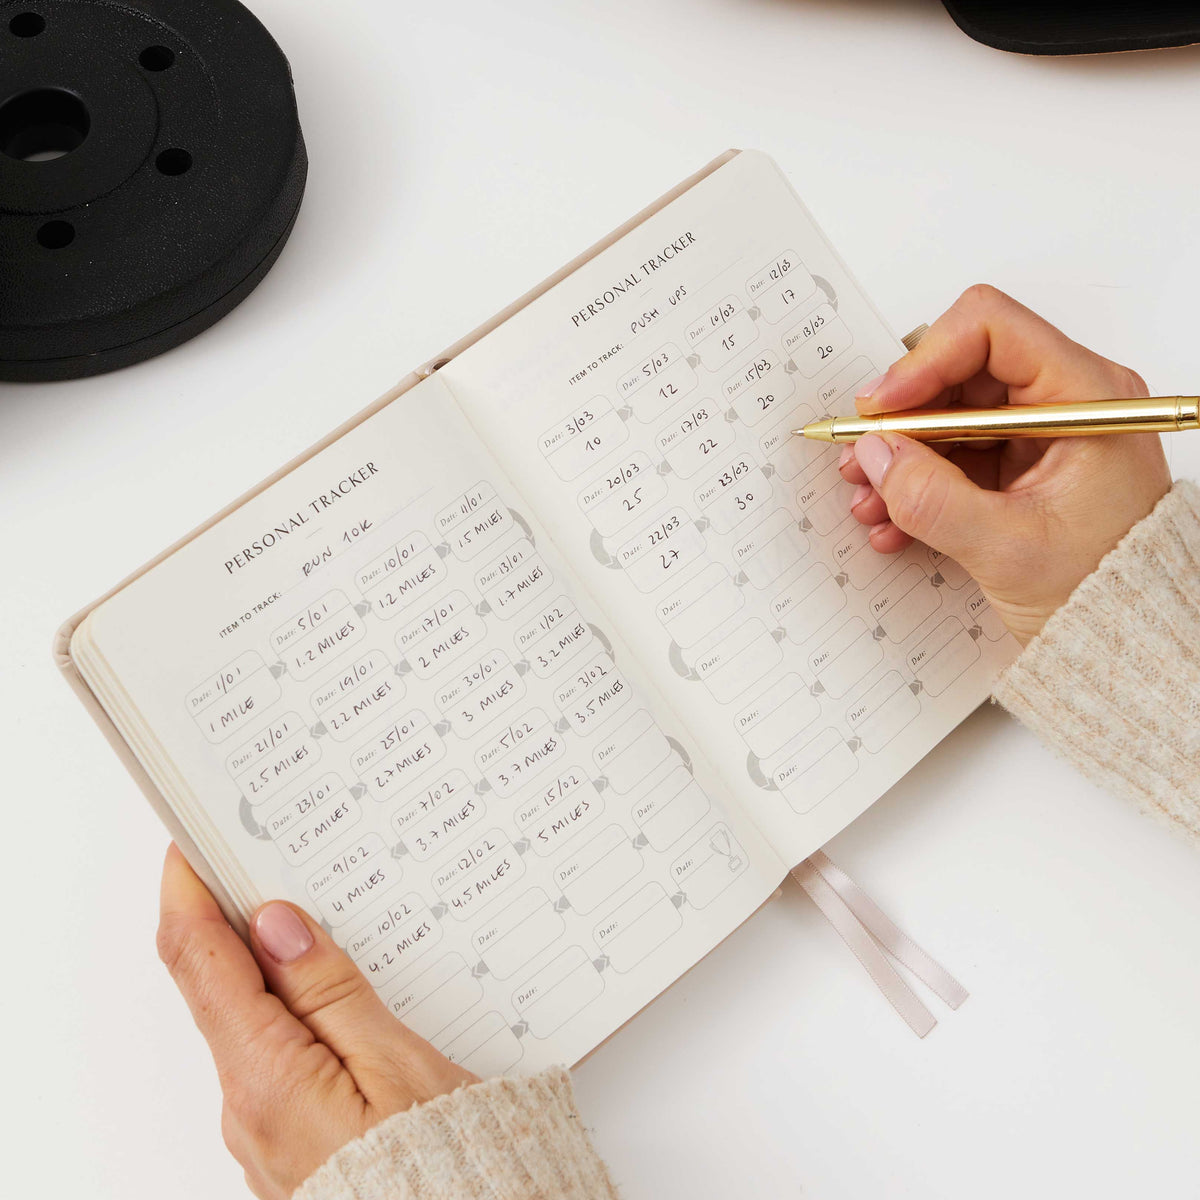 PERSONAL TRACKER
ITEM TO TRACK: RUN 10K
Date: 1/01 Date: 5/01 Date: 10/01 Date: 11/01
1 MILE 1.2 MILES 1.2 MILES 1.5 MILES
Date: 21/01 Date: 19/01 Date: 17/01 Date: 13/01
2.5 MILES 2.2 MILES 2 MILES 1.7 MILES
Date: 23/01 Date: 25/01 Date: 30/01 Date: 1/02
2.5 MILES 2.7 MILES 3 MILES 3.2 MILES
Date: 9/02 Date: 7/02 Date: 5/02 Date: 3/02
4 MILES 3.7 MILES 3.7 MILES 3.5 MILES
Date: 10/02 Date: 12/02 Date: 15/02 Date:
4.2 MILES 4.5 MILES 5 MILES
Date: Date: Date: Date:
Date: Date: Date:
PERSONAL TRACKER
ITEM TO TRACK: PUSH UPS
Date: 3/03 Date: 5/03 Date: 10/03 Date: 12/03
10 12 15 17
Date: 20/03 Date: 17/03 Date: 15/03 Date: 13/03
25 22 20 20
Date: 22/03 Date: 23/03 Date: Date:
27 30
Date: Date: Date:
Date: Date: Date:
Date: Date: Date:
Date: Date: Date: Date: